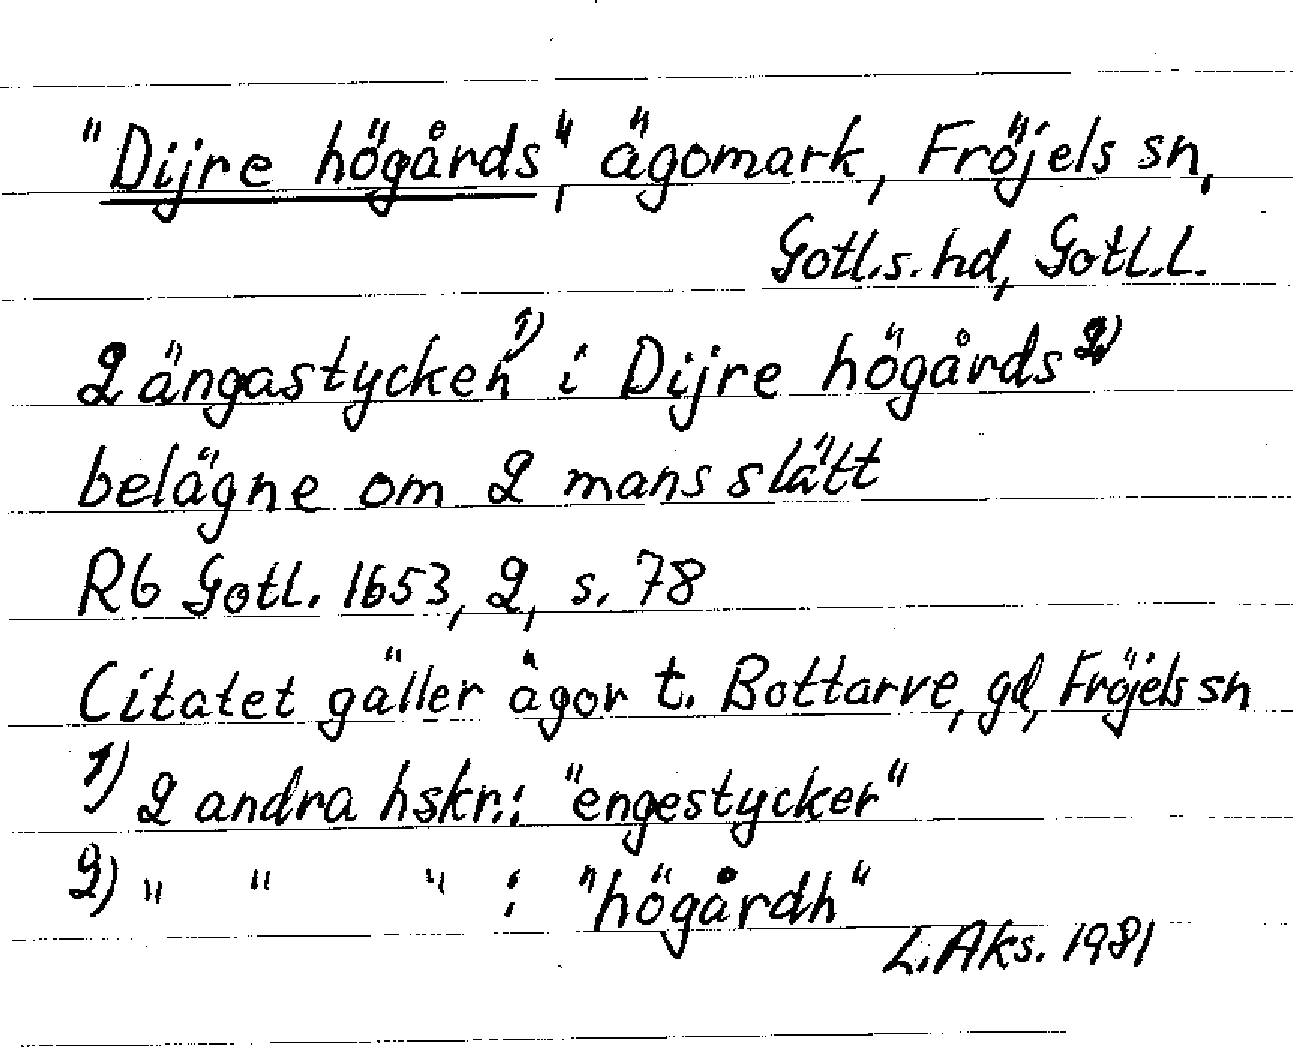 "Dijre högårds", ägomark, Fröjels sn,
Gotl.s. hd, Gotl.l.
2 ängastycken 1) i Dijre högårds 2)
belägne om 2 mans slätt
Rb Gotl. 1653, 2, s. 78
Citatet gäller ägor t. Bottarve, gd, Fröjels sn
1) 2 andra hskr.: "engestycker"
2) " " " : "högårdh"
L. Aks. 1981